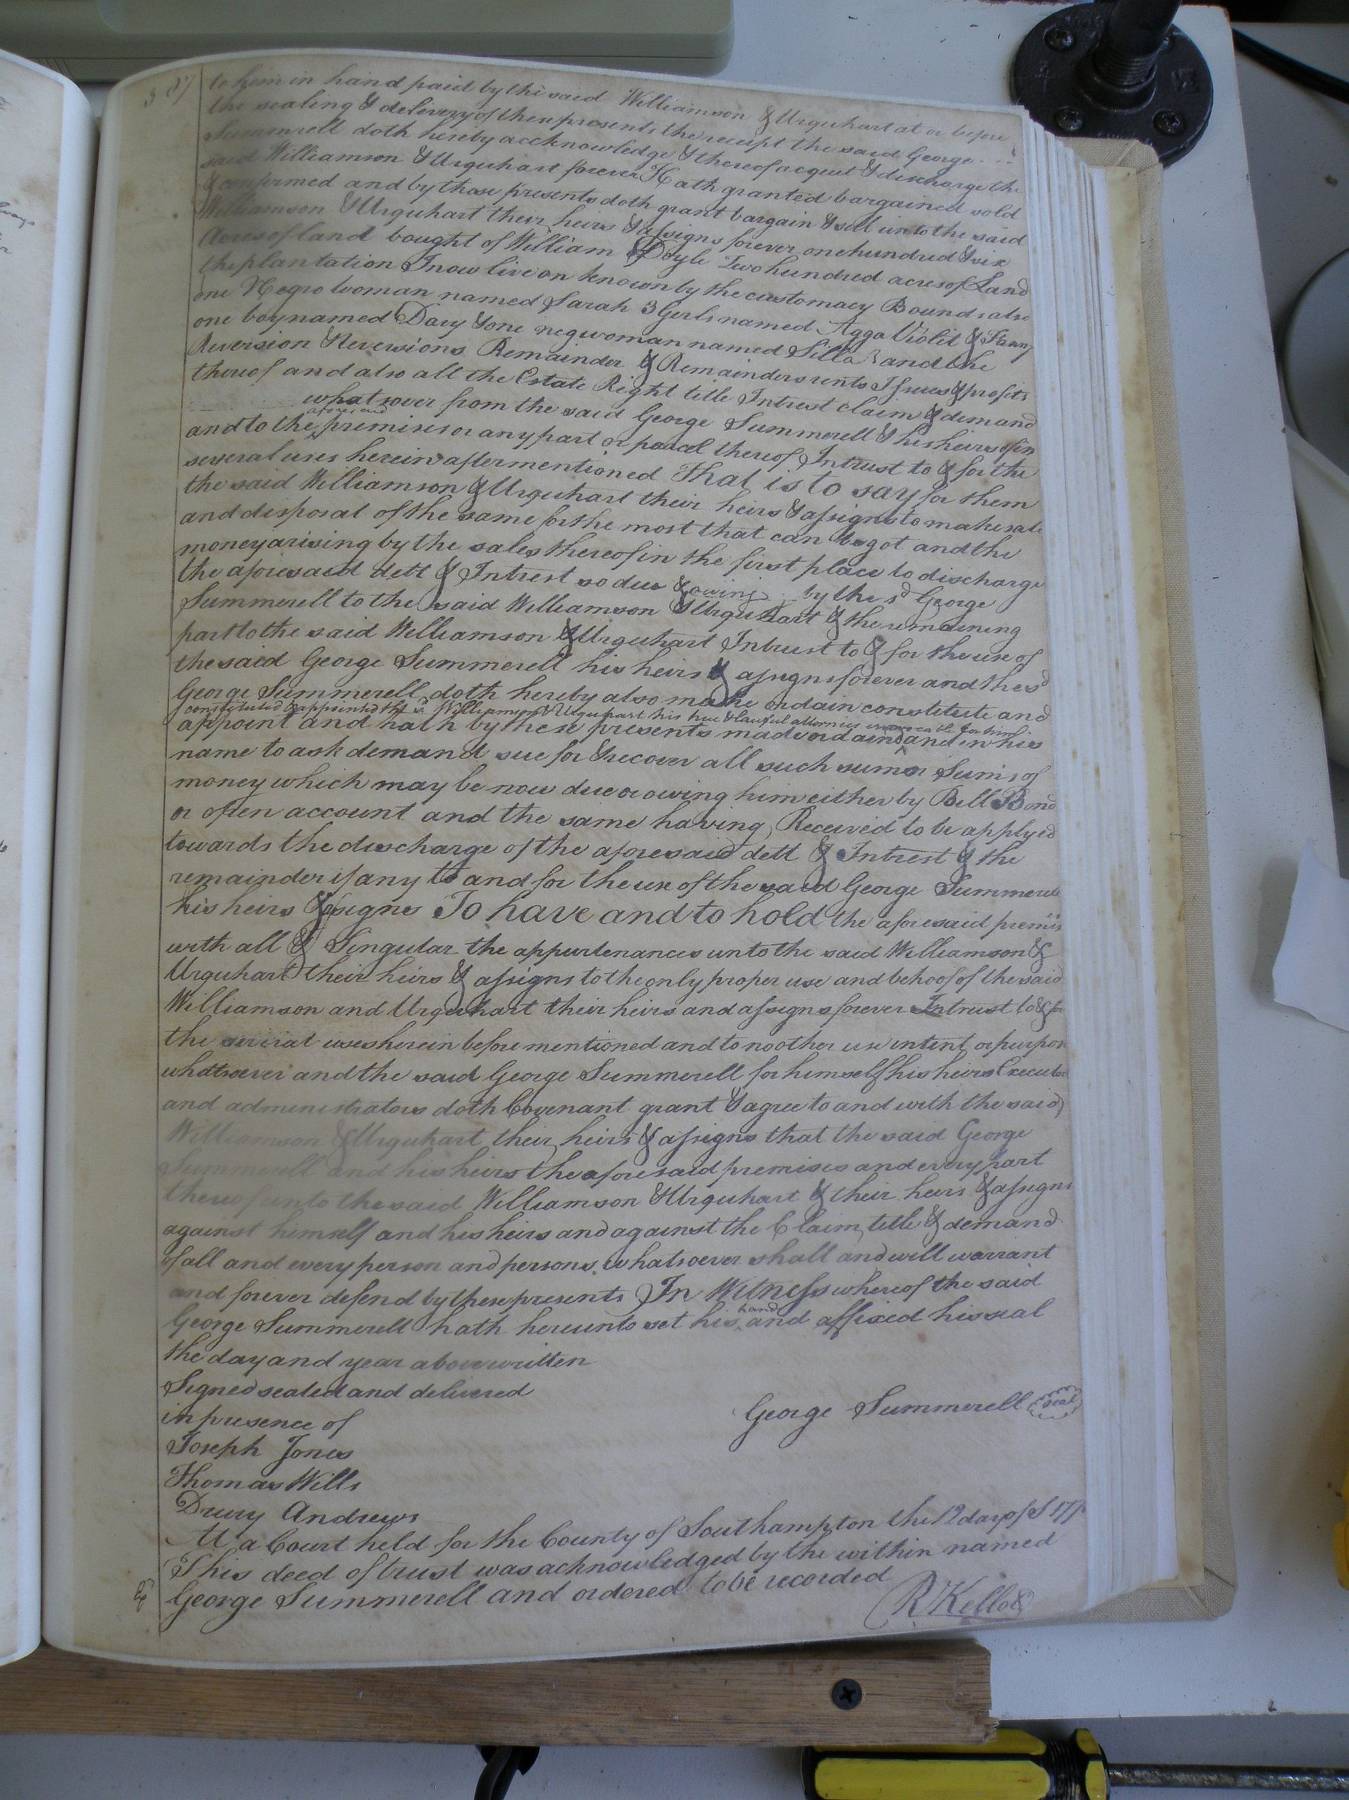 to him in hand paid by the said Williamson & Urquhart at or before
the sealing & delevery of these presents the receipt the said George
Summerell doth hereby acknowledge & thereof acquet & discharge the
said Williamson & Urquhart forever Hath granted bargained sold
& confirmed and by these presents doth grant bargain & sell unto the said
Williamson & Urquhart their heirs & assigns forever one hundred & six
Acres of land bought of William Doyle Two hundred acres of Land
the plantation I now live on known by the customary Bounds also
one Negro woman named Sarah 3 Gerls named Agga Violit & Fanny
one boy named Davy & one negwoman named Silla and the
Reversion & Reversions Remainder & Remainders rents Issues & profits
thereof and also all the Estate Right title Intrest claim & demand
whatsover from the said George Summerell & his heirs of in
and to the aforesaid premises or any part or parcel thereof Intrust to & for the
several uses herein after mentioned That is to say for them
the said Williamson & Urquhart their heirs & assigns to make sale
and disposal of the same for the most that can be got and the
money arising by the sales thereof in the first place to discharge
the aforesaid dett & Intrest so due & owing by the sd George
Summerell to the said Williamson & Urquhart & the remaining
part to the said Williamson & Urquhart Intrust to & for the use of
the said George Summerell his heirs & assigns forever and the sd
George Summerell doth hereby also make ordain constitute and
constituted & appointed the sd Williamson & Urquhart his true & lawful attornies
appoint and hath by these presents made ordaind and in his
name to ask demand sue for & recover all such sum or Sums of
money which may be now due or owing him either by Bill Bond
or open account and the same having Received to be applyed
towards the discharge of the aforesaid dett & Intrest & the
remainder if any to and for the use of the said George Summerell
his heirs & assigns To have and to hold the aforesaid premis
with all & Singular the appurtenances unto the said Williamson &
Urquhart their heirs & assigns to the only proper use and behoof of the said
Williamson and Urquhart their heirs and assigns forever Intrust to & for
the several uses herein before mentioned and to no other use intent or purpos
whatsoever and the said George Summerell for himself his heirs Executor
and administrators doth Covenant grant & agree to and with the said
Williamson & Urquhart their heirs & assigns that the said George
Summerell and his heirs the aforesaid premises and every part
thereof unto the said Williamson & Urquhart & their heirs & assigns
against himself and his heirs and against the Claim title & demand
of all and every person and persons whatsoever shall and will warrant
and forever defend by these presents In Witness whereof the said
George Summerell hath hereunto set his hand and affixed his seal
the day and year above written
Signed sealed and delivered
in presence of
George Summerell seal
Joseph Jones
Thomas Wills
Drury Andrews
At a Court held for the County of Southampton the 12 day of
This deed of trust was acknowledged by the within named
George Summerell and ordered to be recorded
R Kello